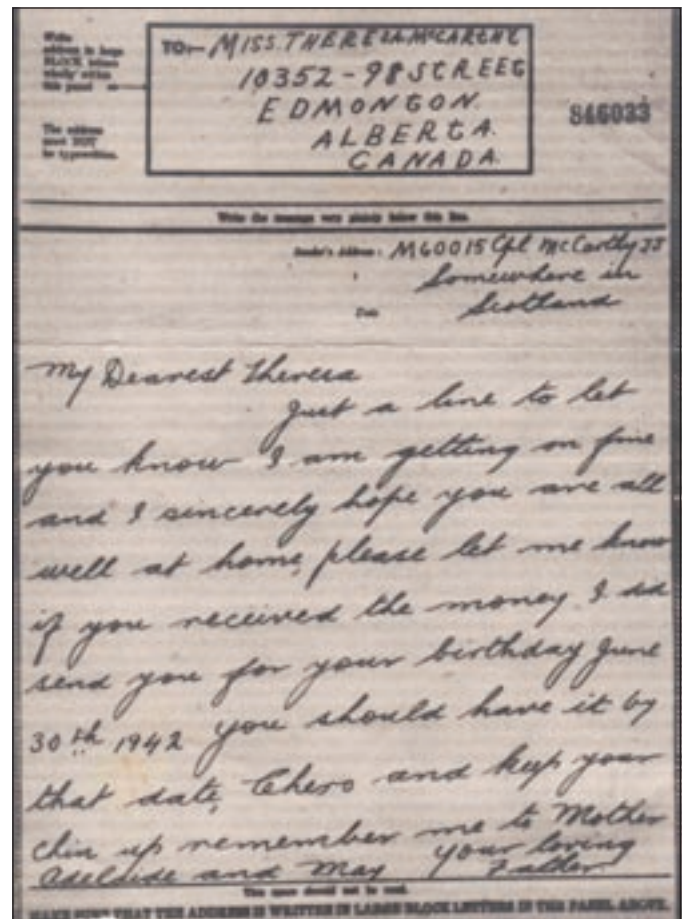 Write
address in large
BLOCK letters
wholly within
this panel
The address
must NOT
be typewritten.
TO:— MISS. THERESA McCARTHY
10352 - 98 STREET
EDMONTON.
ALBERTA.
CANADA.
846033
Write the message very plainly below this line.
Sender's Address : M60015 Cpl McCarthy JJ
Somewhere in
Date Scotland
My Dearest Theresa
Just a line to let
you know I am getting on fine
and I sincerely hope you are all
well at home, please let me know
if you received the money I did
send you for your birthday June
30th 1942 you should have it by
that date, Chero and keep your
chin up remember me to Mother
Adelaide and May your loving
Father.
This space should not be used.
MAKE SURE THAT THE ADDRESS IS WRITTEN IN LARGE BLOCK LETTERS IN THE PANEL ABOVE.